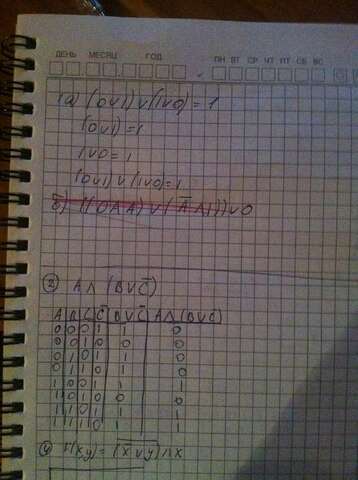 ДЕНЬ МЕСЯЦ ГОД ПН ВТ СР ЧТ ПТ СБ ВС
а) (0∨1)∨(1∨0)=1
(0∨1)=1
1∨0=1
(0∨1)∨(1∨0)=1
б) ((0∧A)∨(A̅∧1))∨0
② A∧(B∨C̅)
A B C C̅ B∨C̅ A∧(B∨C̅)
0 0 0 1 1 0
0 0 1 0 0 0
0 1 0 1 1 0
0 1 1 0 1 0
1 0 0 1 1 1
1 0 1 0 0 0
1 1 0 1 1 1
1 1 1 0 1 1
④ F(x,y)=(x̅∨y̅)∧x